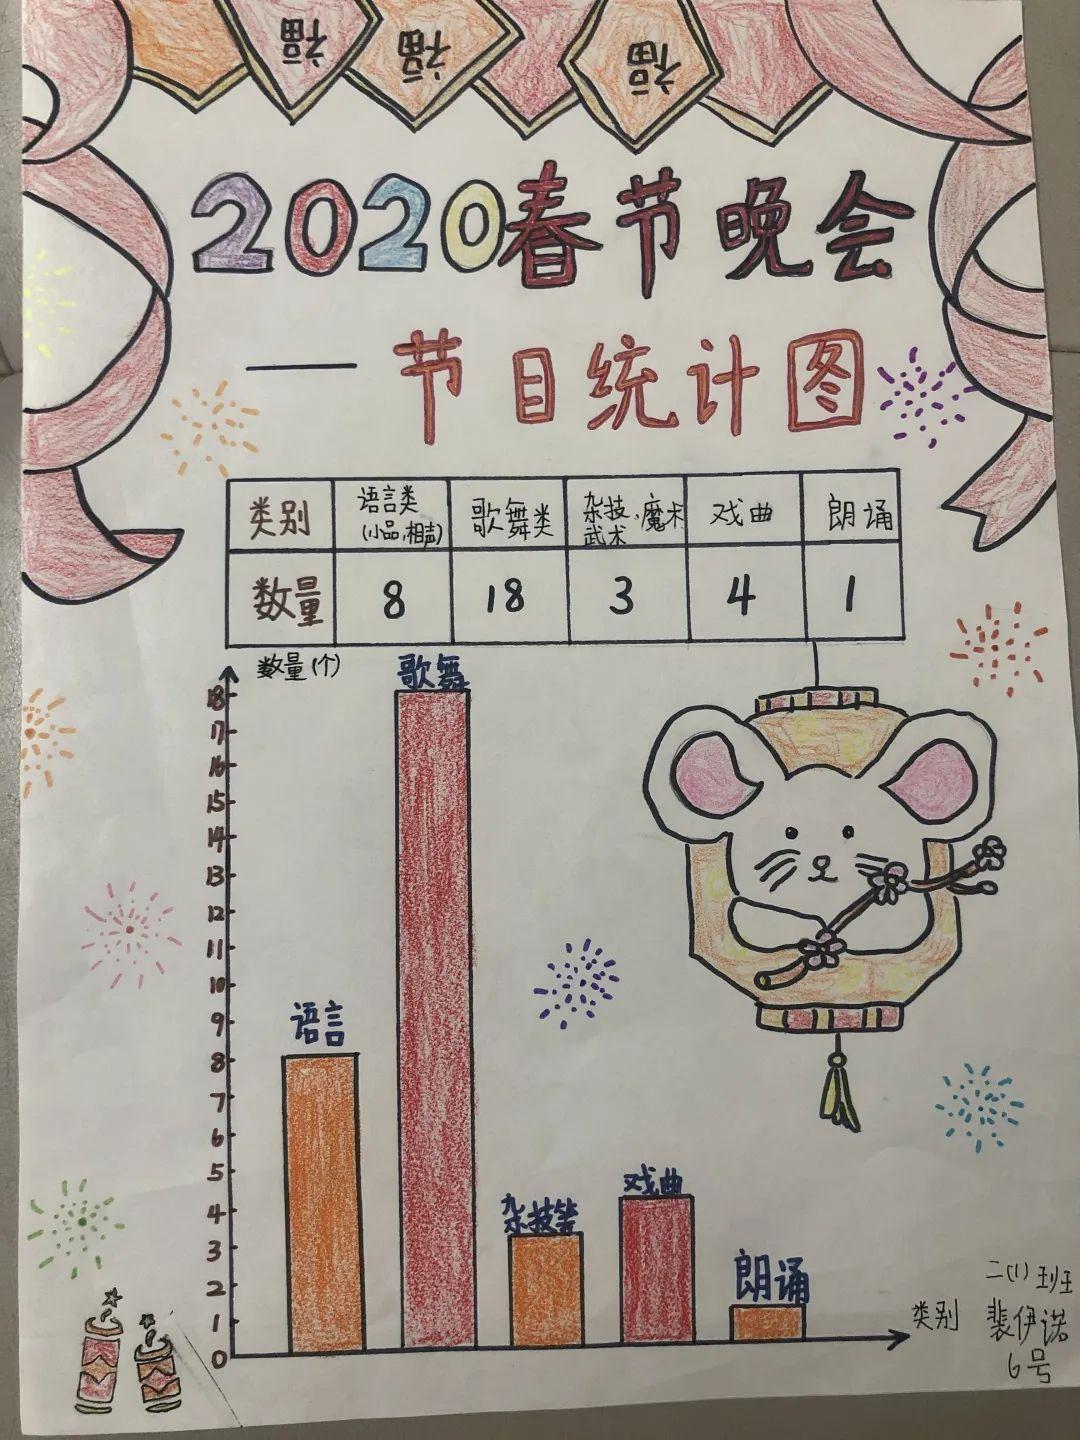 福 福 福
2020春节晚会
——节目统计图
类别 语言类(小品,相声) 歌舞类 杂技,魔术武术 戏曲 朗诵
数量 8 18 3 4 1
数量(个)
歌舞
18
17
16
15
14
13
12
11
10
语言
9
8
7
6
5
戏曲
4
杂技等
3
朗诵
2
1
0
类别
二(1)班
裴伊诺
6号